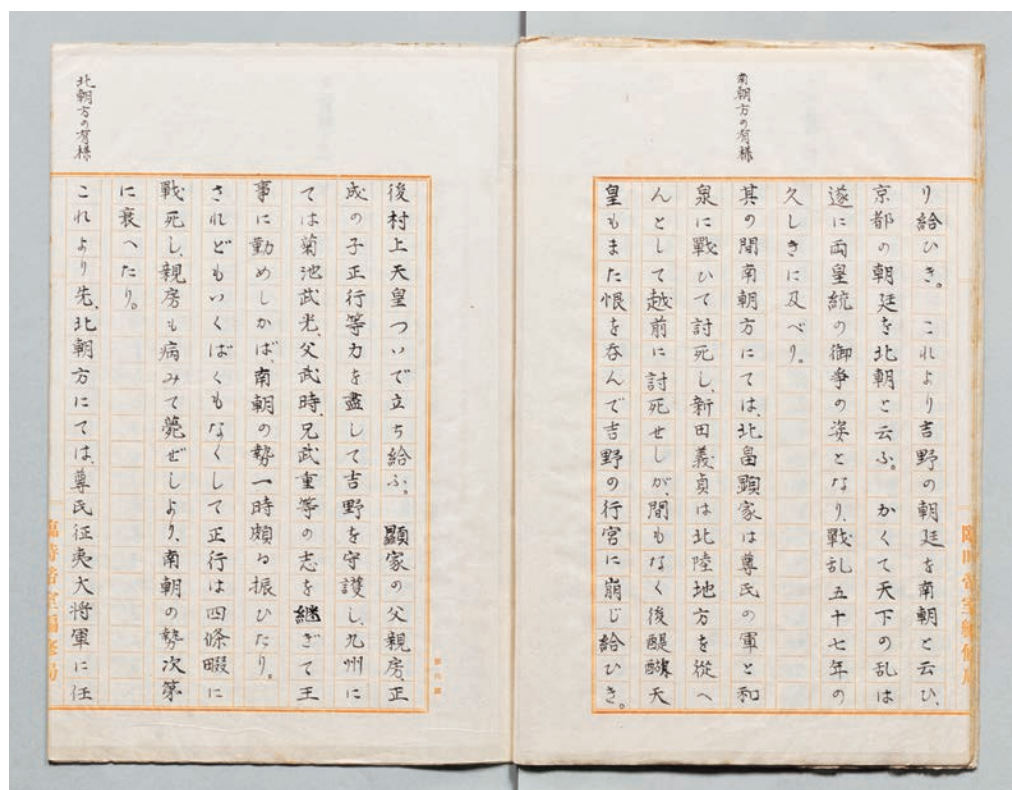 南朝方の有様
り給ひき。　これより吉野の朝廷を南朝と云ひ、
京都の朝廷を北朝と云ふ。　かくて天下の乱は
遂に両皇統の御爭の姿となり、戰乱五十七年の
久しきに及べり。
其の間南朝方にては、北畠顕家は尊氏の軍と和
泉に戰ひて討死し、新田義貞は北陸地方を從へ
んとして越前に討死せしが、間もなく後醍醐天
皇もまた恨を呑んで吉野の行宮に崩じ給ひき。
後村上天皇ついで立ち給ふ。　顕家の父親房、正
成の子正行等力を盡して吉野を守護し、九州に
ては菊池武光、父武時、兄武重等の志を継ぎて王
事に勤めしかば、南朝の勢一時頗る振ひたり。
されどもいくばくもなくして正行は四條畷に
戰死し、親房も病みて薨ぜしより、南朝の勢次第
に衰へたり。
北朝方の有様
これより先、北朝方にては、尊氏征夷大将軍に任